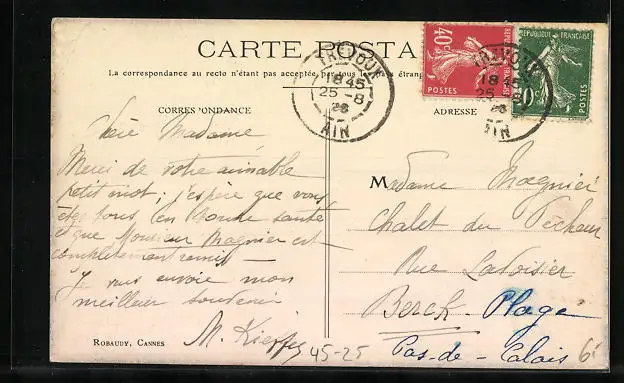 CARTE POSTA
La correspondance au recto n'étant pas acceptée par tous les pays étran
CORRESPONDANCE
ADRESSE
TREVOUX
18 45
25 - 8
AIN
TREVOUX
18 45
25
26
AIN
40c
RÉPUBLIQUE FRANÇAISE
POSTES
RÉPUBLIQUE FRANÇAISE
POSTES
Chère Madame
Merci de votre aimable
petit mot ; j'espère que vous
êtes tous en bonne santé
et que Monsieur Magnier est
complètement remis —
Je vous envoie mon
meilleur souvenir
M.
45-25
Madame Magnier
Chalet du Pêcheur
Rue Lavoisier
Berck-Plage
Pas-de-Calais
ROBAUDY, CANNES